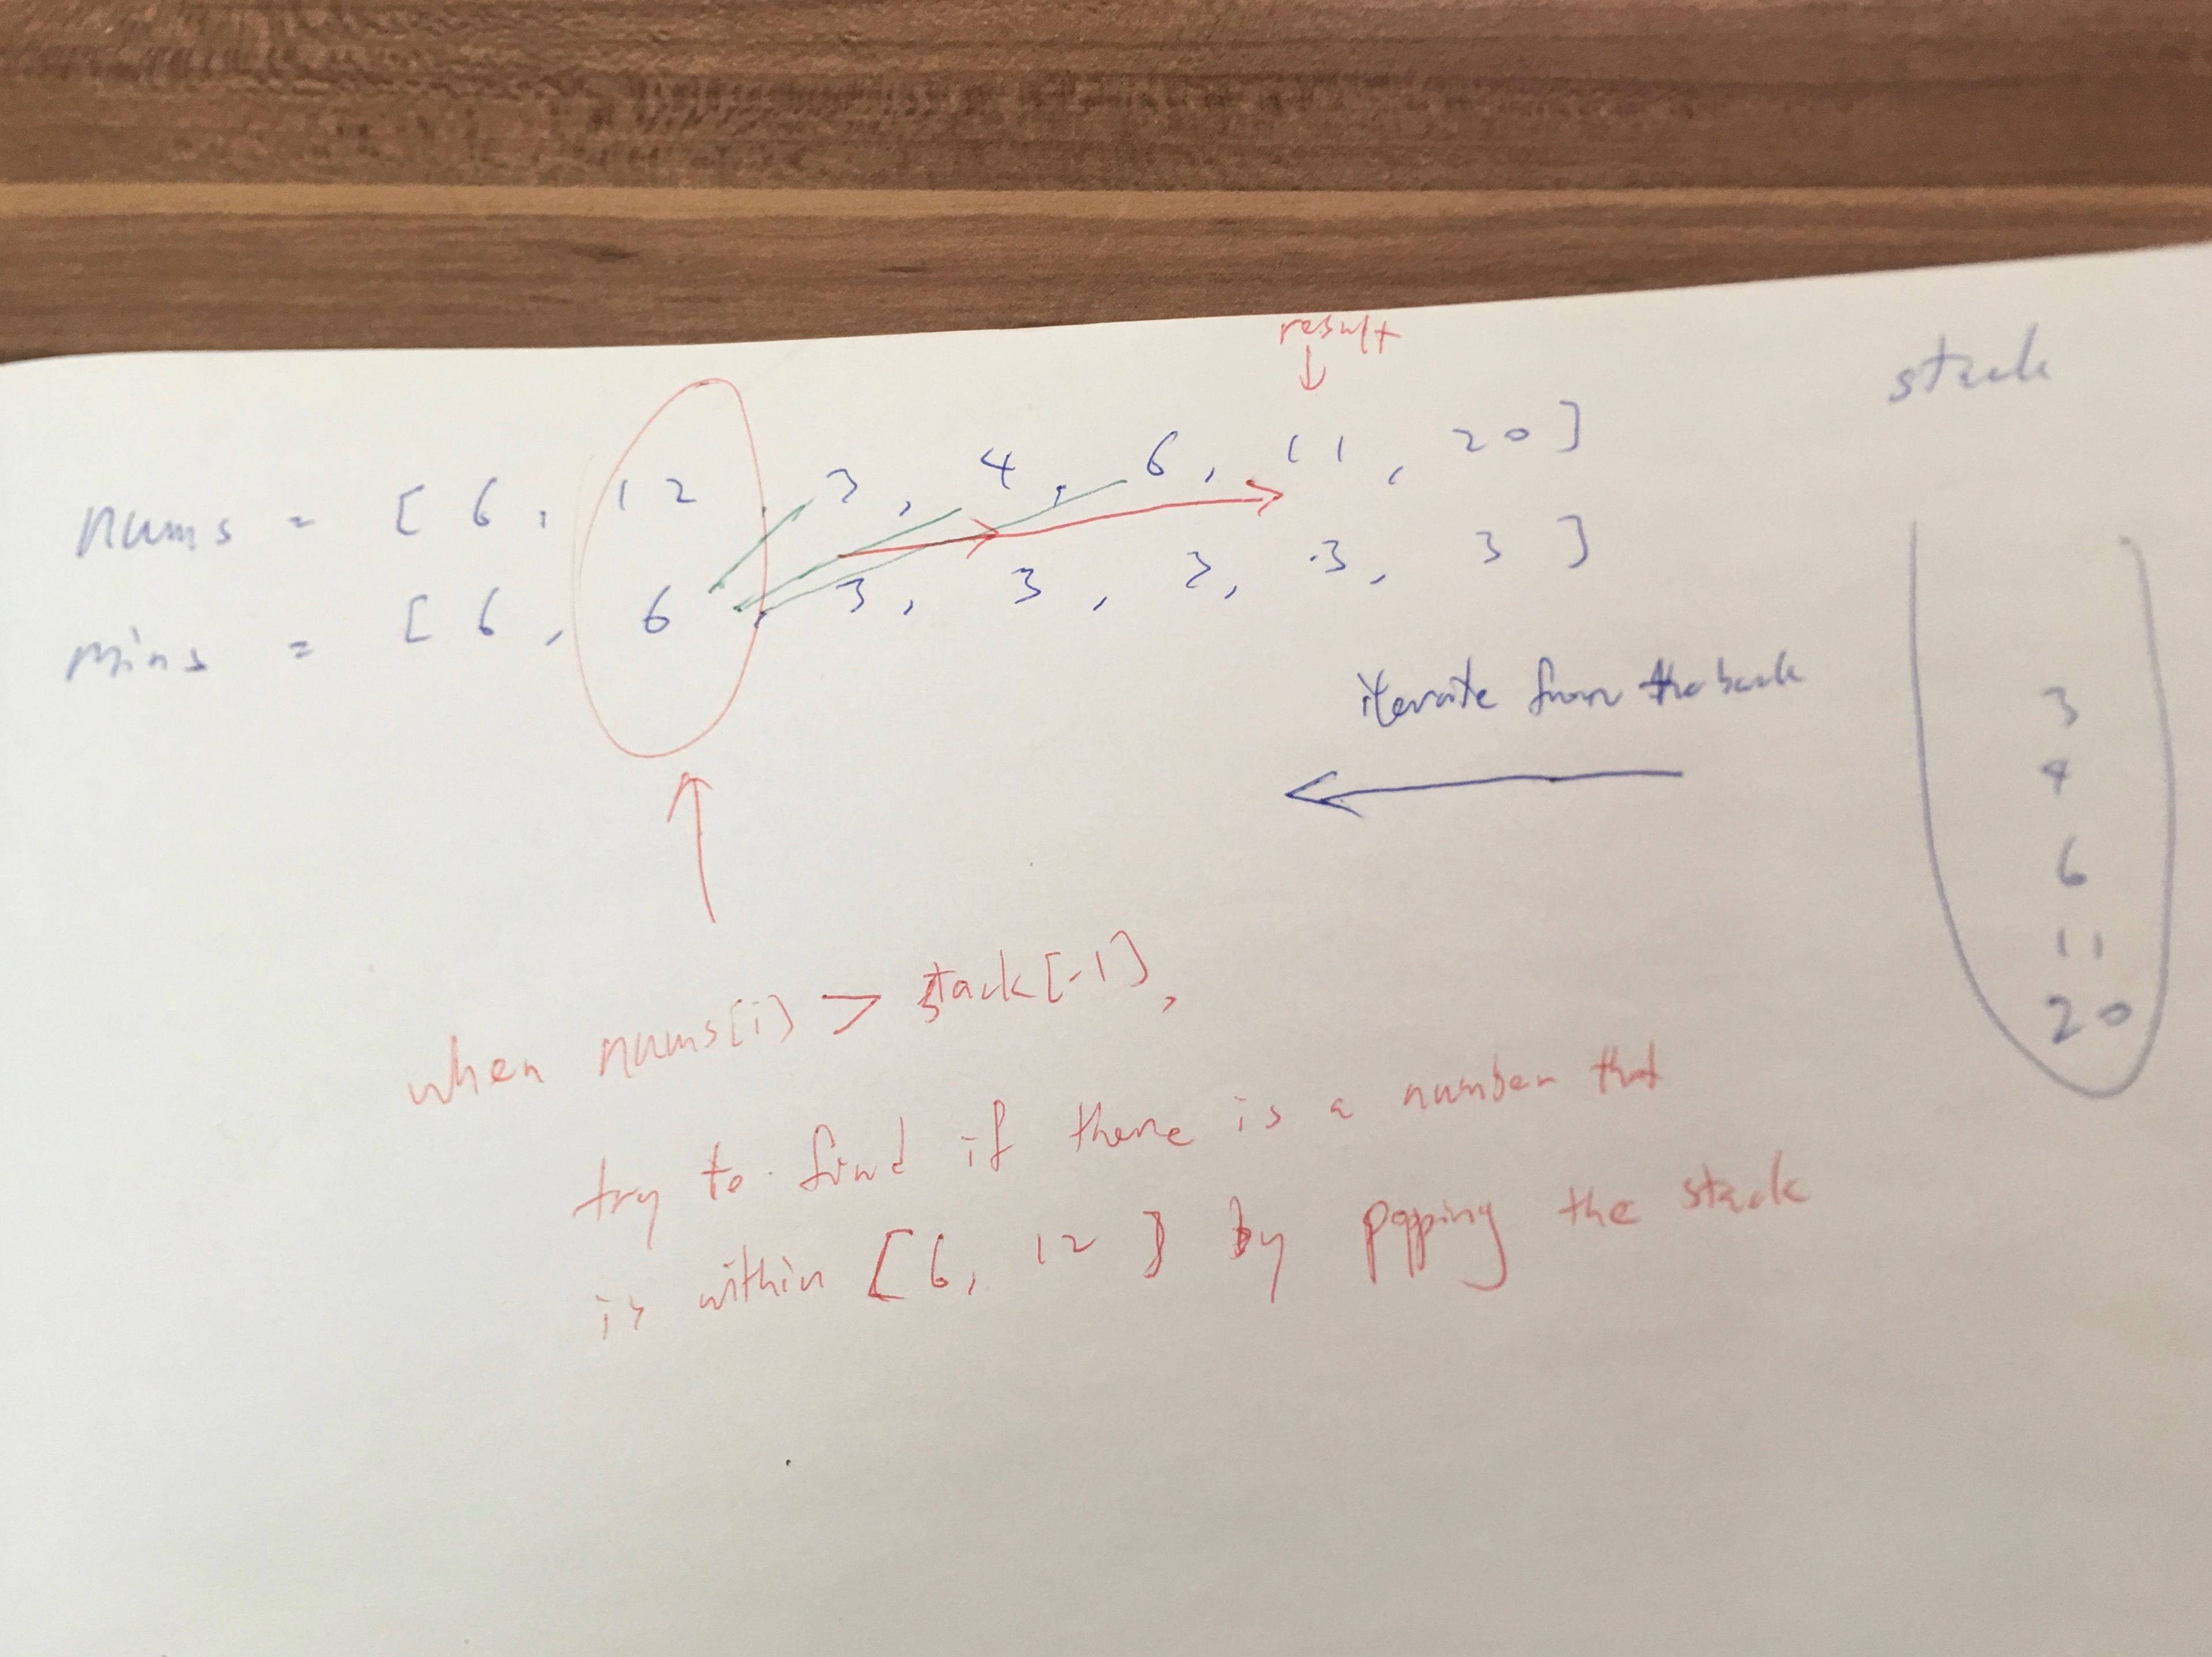 result
stack
nums = [ 6, 12, 3, 4, 6, 11, 20 ]
mins = [ 6, 6, 3, 3, 3, 3, 3 ]
iterate from the back
3
4
6
11
20
when nums[i] > stack[-1],
try to find if there is a number that
is within [6, 12] by popping the stack